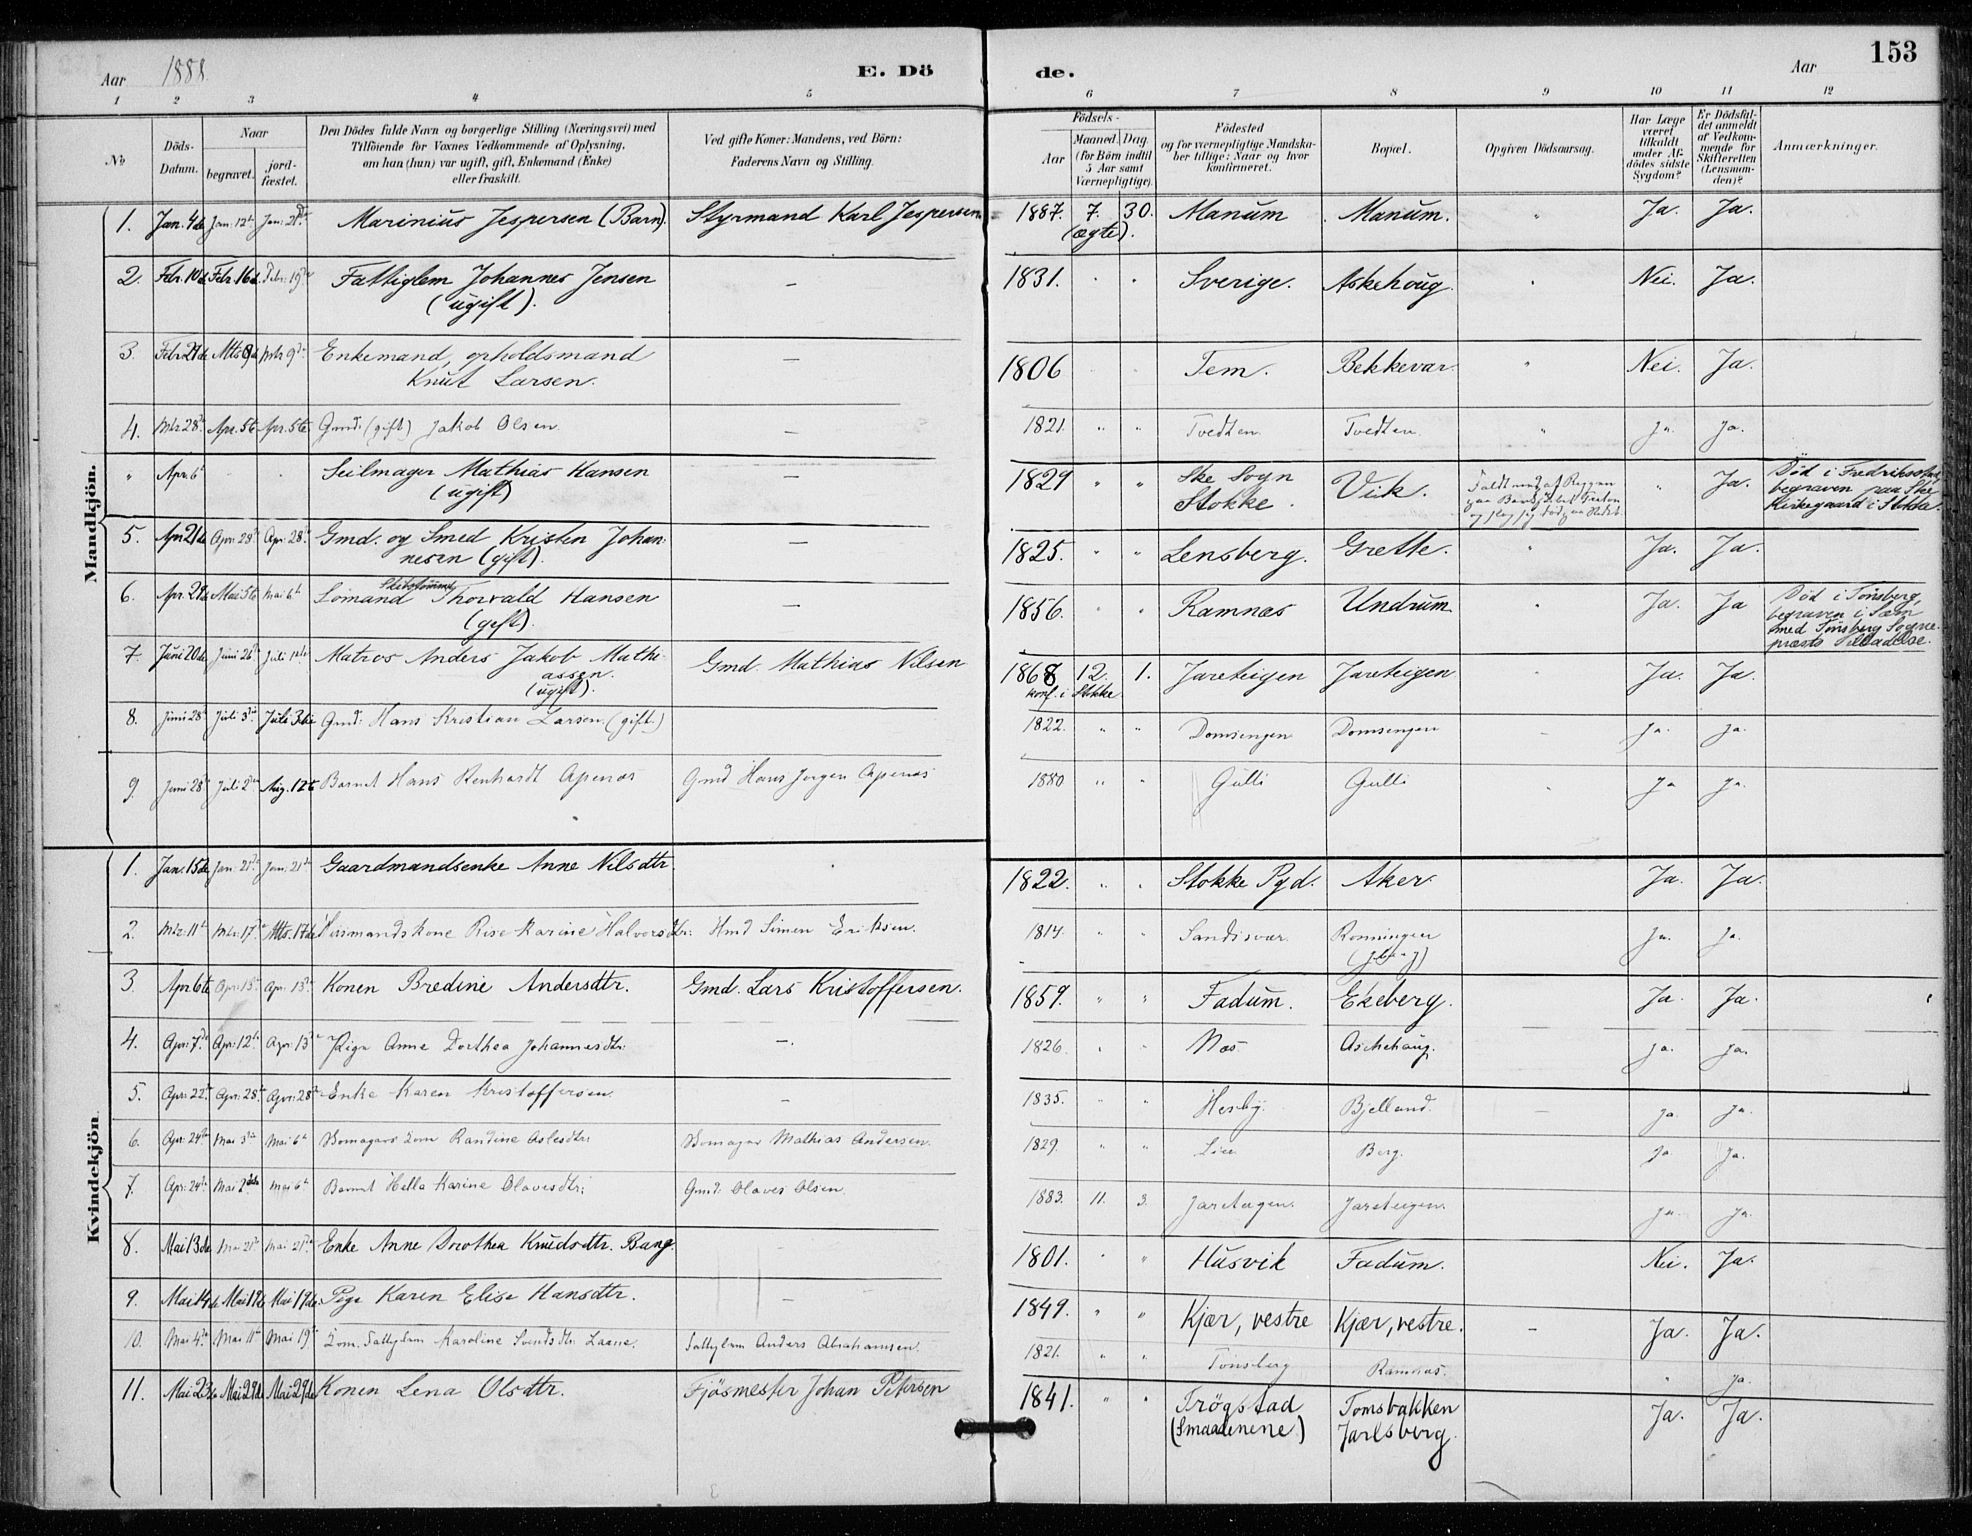 Aar 1888. E. Döde. Aar 153
1 2 3 4 5 6 7 8 9 10 11 12
No
Döds-Datum.
Naar
begravet.
jordfæstet.
Den Dödes fulde Navn og borgerlige Stilling (Næringsvei) med
Tilföiende for Voxnes Vedkommende af Oplysning,
om han (hun) var ugift, gift, Enkemand (Enke)
eller fraskilt.
Ved gifte Koner: Mandens, ved Börn:
Faderens Navn og Stilling.
Födsels-
Aar
Maaned. Dag.
(for Börn indtil
5 Aar samt
Værnepligtige).
Födested
og for værnepligtige Mandska-
ber tillige: Naar og hvor
Konfirmeret.
Bopæl.
Opgiven Dödsaarsag.
Har Læge
været
tilkaldt
under Af-
dödes sidste
Sygdom?
Er Dödsfal-
det anmeldt
af Vedkom-
mende for
Skifteretten
(Lensman-
den)?
Anmærkninger.
Mandkjön.
1. Jan. 4de Jan. 12te Jan. 21de Marinius Jespersen (Barn). Styrmand Karl Jespersen 1887. 7. 30. Manum Manum. " Ja. Ja.
(ægte).
2. Febr. 10de Febr. 16de Febr. 19de Fattiglem Johannes Jensen — 1831. " " Sverige. Askehoug. " Nei. Ja.
(ugift).
3. Febr. 27de Mts. 8de Mts 9de Enkemand, opholdsmand — 1806 " " Tem. Bekkevar. " Nei. Ja.
Knut Larsen.
4. Mts 28de Apr. 5te Apr. 5te Gmd. (gift) Jakob Olsen — 1821. " " Tvedten Tvedten " Ja. Ja.
" Apr. 6te Seilmager Mathias Hansen — 1829 " " Ske Sogn Vik. " Ja. Död i Fredrikss
(ugift) Stokke begraven paa Ske
Kirkegaard i Stokke.
5. Apr. 21de Apr. 28de Apr. 28de Gmd. og Smed Kristen Johan- — 1825. " " Lensberg. Grette. " Ja. Ja.
nesen (gift).
6. Apr. 27de Mai 5te Mai 6te Sömand Skibstömmer Thorvald Hansen — 1856. " " Ramnæs Undrum. " Ja. Ja Död i Tönsberg,
(gift). begraven i Sæm
med Tönsberg Sogne-
præsts Tilladelse.
7. Juni 20de Juni 26de Juli 1ste Matros Anders Jakob Mathi- Gmd. Mathias Nilsen 1868 12. 1. Jareteigen Jareteigen " Ja. Ja.
assen. konf. i Stokke
(ugift).
8. Juni 28de Juli 3die Juli 3die Gmd: Hans Kristian Larsen (gift.) 1822. " " Domsengen Domsengen Ja. Ja.
9. Juni 28de Juli 2den Aug. 12te Barnet Hans Renhardt Apenæs Gmd Hans Jörgen Apenæs 1880 " " Gulli Gulli Ja Ja.
Kvindekjön
1. Jan. 15de Jan. 21de Jan. 21de Gaardmandsenke Anne Nilsdtr. 1822. " " Stokke Pgd. Aker. Ja. Ja.
2. Mts. 11te Mts. 17de Mts. 17de Husmandskone Rise Karine Halvorsdtr. Hmd Simen Eriksen. 1814. " " Sandsvær. Ronningen Ja. Ja.
3. Apr. 6te Apr. 13de Apr. 13de Konen Bredine Andersdtr. Gmd. Lars Kristoffersen. 1859. " " Fadum. Ekeberg. Ja. Ja.
4. Apr. 7de Apr. 12te Apr. 13de Pige Anne Dorthea Johannesdtr. —. 1826. " " Næs Aschehaug. — Ja. Ja.
5. Apr. 22de Apr. 28de Apr. 28de Enke Karen Kristoffersen. — 1835. " " Hesby. Bjelland. — Ja. Ja.
6. Apr. 24de Mai 3die Mai 6te Randine Aslesdtr. Mathias Andersen. 1829. " " Lie Berg. Ja Ja.
7. Apr. 24de Mai 2den Mai 6te Barnet Hella Karine Olavesdtr. Gmd. Olaves Olsen. 1883. 11. 3. Jareteigen. Jareteigen. Ja. Ja.
8. Mai 13de Mai 21de Mai 21de Enke Anne Dorothea Knudsdtr. Bang. — 1801. " " Husvik Fadum. Nei. Ja.
9. Mai 14de Mai 19de Mai 19de Pige Karen Elise Hansdtr. — 1849. " " Kjær, vestre Kjær, vestre. — Ja. Ja.
10. Mai 4de Mai 11te Mai 19de Fattiglem Karoline Svendsdtr. Laane. Fattiglem Anders Abrahamsen. 1821. " " Tönsberg Ramnæs. " Ja.
11. Mai 23de Mai 29de Mai 29de Konen Lena Olsdtr. Fjösmester Johan Petersen 1841. " " Trögstad Tomsbakken Ja. Ja.
(Smaalenene) Jarlsberg.